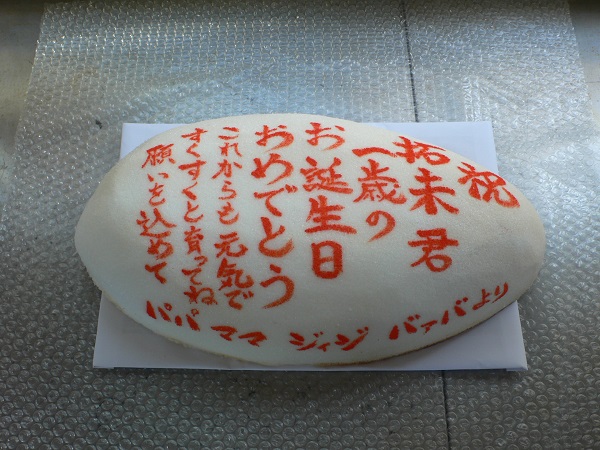 祝
拓未君
一歳の
お誕生日
おめでとう
これからも元気で
すくすくと育ってね
願いを込めて
パパ ママ ジィジ バァバより